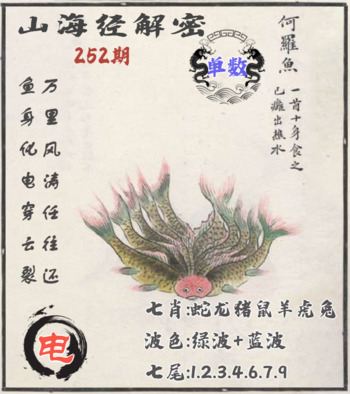 山海经解密
252期
单数
何羅魚
一首十身食之
已癰出譙水
万里风涛任往还
鱼身化电穿云裂
电
七肖:蛇龙猪鼠羊虎兔
波色:绿波+蓝波
七尾:1.2.3.4.6.7.9